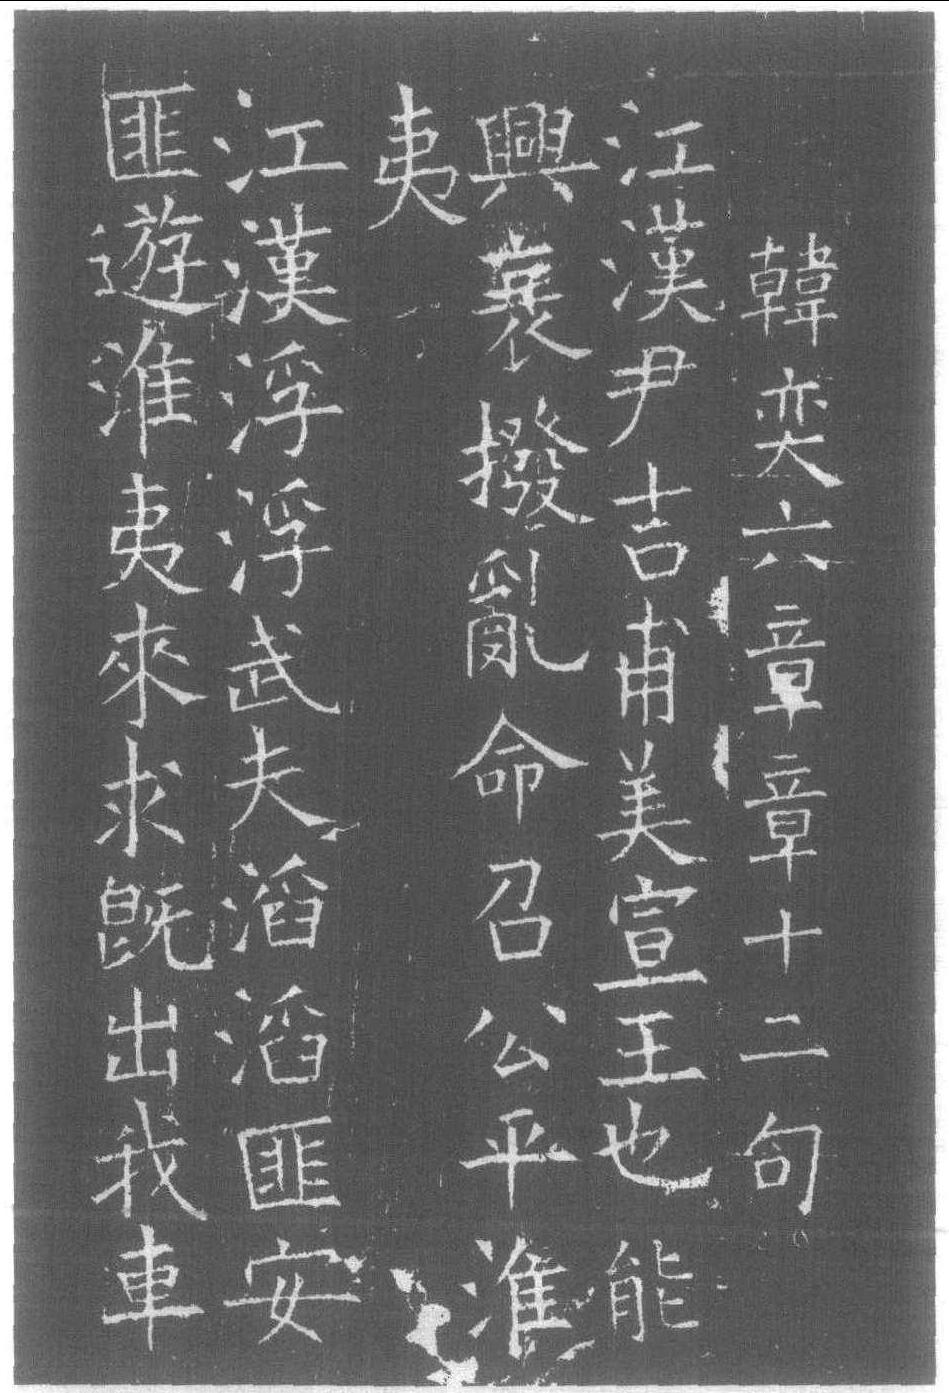 韓奕六章章十二句
江漢尹吉甫美宣王也能
興衰撥亂命召公平淮
夷
江漢浮浮武夫滔滔匪安
匪遊淮夷來求既出我車